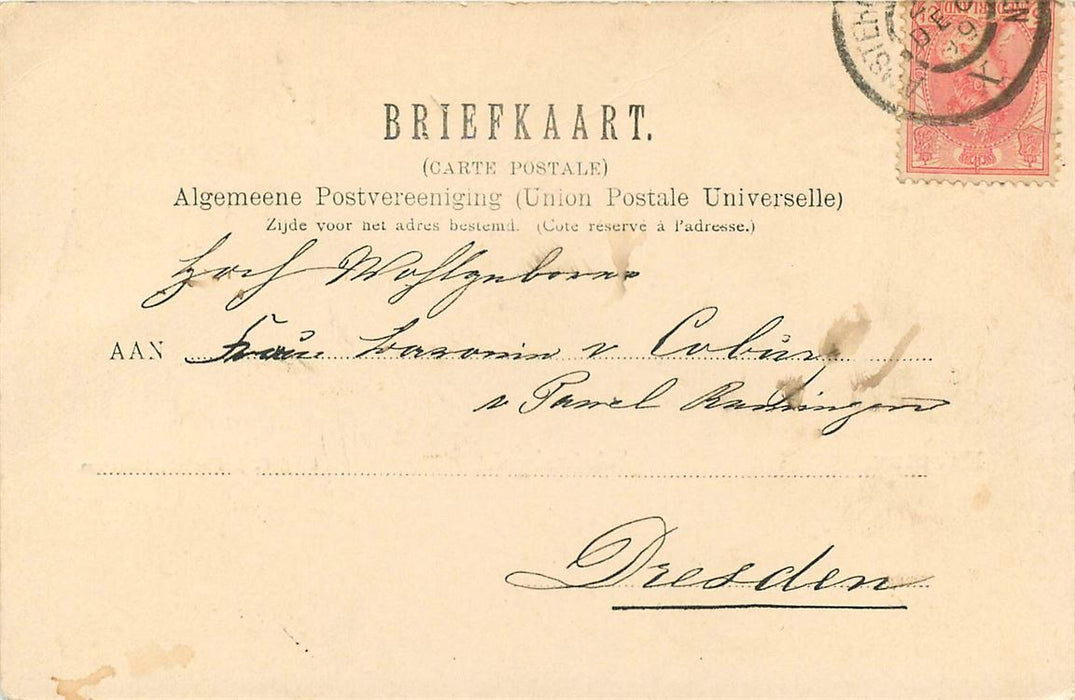 AMSTERDAM
DEC
BRIEFKAART.
(CARTE POSTALE)
Algemeene Postvereeniging (Union Postale Universelle)
Zijde voor het adres bestemd. (Côte réservé à l'adresse.)
Hoch Wohlgeboren
AAN Frau Baronin v Coburg
v Pawel Rammingen
Dresden